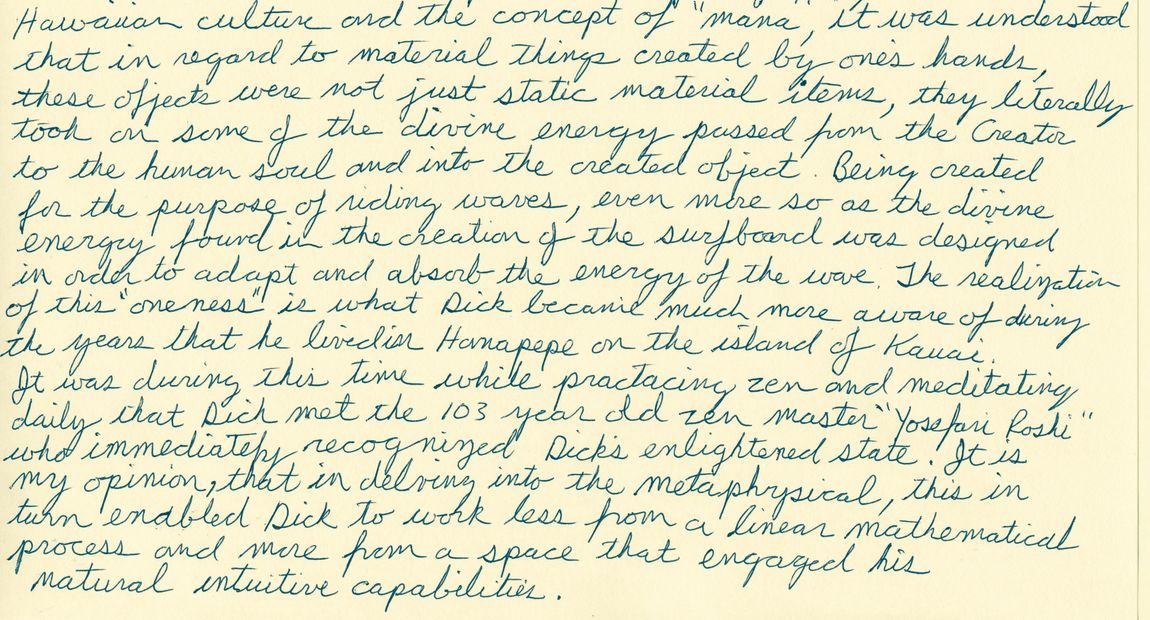 Hawaiian culture and the concept of "mana", it was understood
that in regard to material things created by one's hands,
these objects were not just static material items, they literally
took on some of the divine energy passed from the Creator
to the human soul and into the created object. Being created
for the purpose of riding waves, even more so as the divine
energy found in the creation of the surfboard was designed
in order to adapt and absorb the energy of the wave. The realization
of this "oneness" is what Dick became much more aware of during
the years that he lived in Hanapepe on the island of Kauai.
It was during this time while practacing zen and meditating
daily that Dick met the 103 year old zen master "Yosefari Roshi"
who immediately recognized Dick's enlightened state. It is
my opinion, that in delving into the metaphysical, this in
turn enabled Dick to work less from a linear mathematical
process and more from a space that engaged his
natural intuitive capabilities.